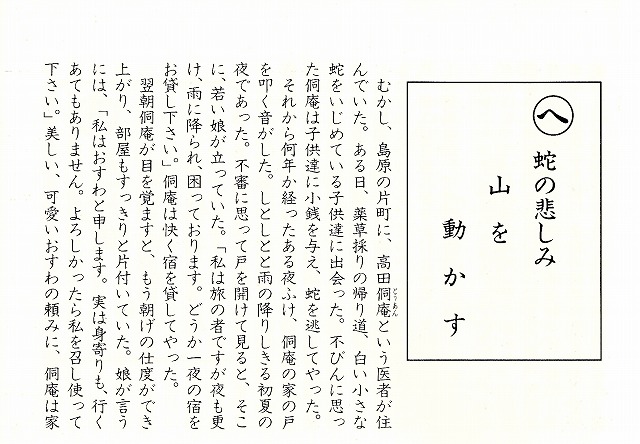 へ
蛇の悲しみ
山を
動かす
むかし、島原の片町に、高田洞庵という医者が住
とうあん
んでいた。ある日、薬草採りの帰り道、白い小さな
蛇をいじめている子供達に出会った。不びんに思っ
た洞庵は子供達に小銭を与え、蛇を逃してやった。
それから何年か経ったある夜ふけ、洞庵の家の戸
を叩く音がした。しとしとと雨の降りしきる初夏の
夜であった。不審に思って戸を開けて見ると、そこ
に、若い娘が立っていた。「私は旅の者ですが夜も更
け、雨に降られ、困っております。どうか一夜の宿を
お貸し下さい」。洞庵は快く宿を貸してやった。
翌朝洞庵が目を覚ますと、もう朝げの仕度ができ
上がり、部屋もすっきりと片付いていた。娘が言う
には、「私はおすわと申します。実は身寄りも、行く
あてもありません。よろしかったら私を召し使って
下さい」。美しい、可愛いおすわの頼みに、洞庵は家